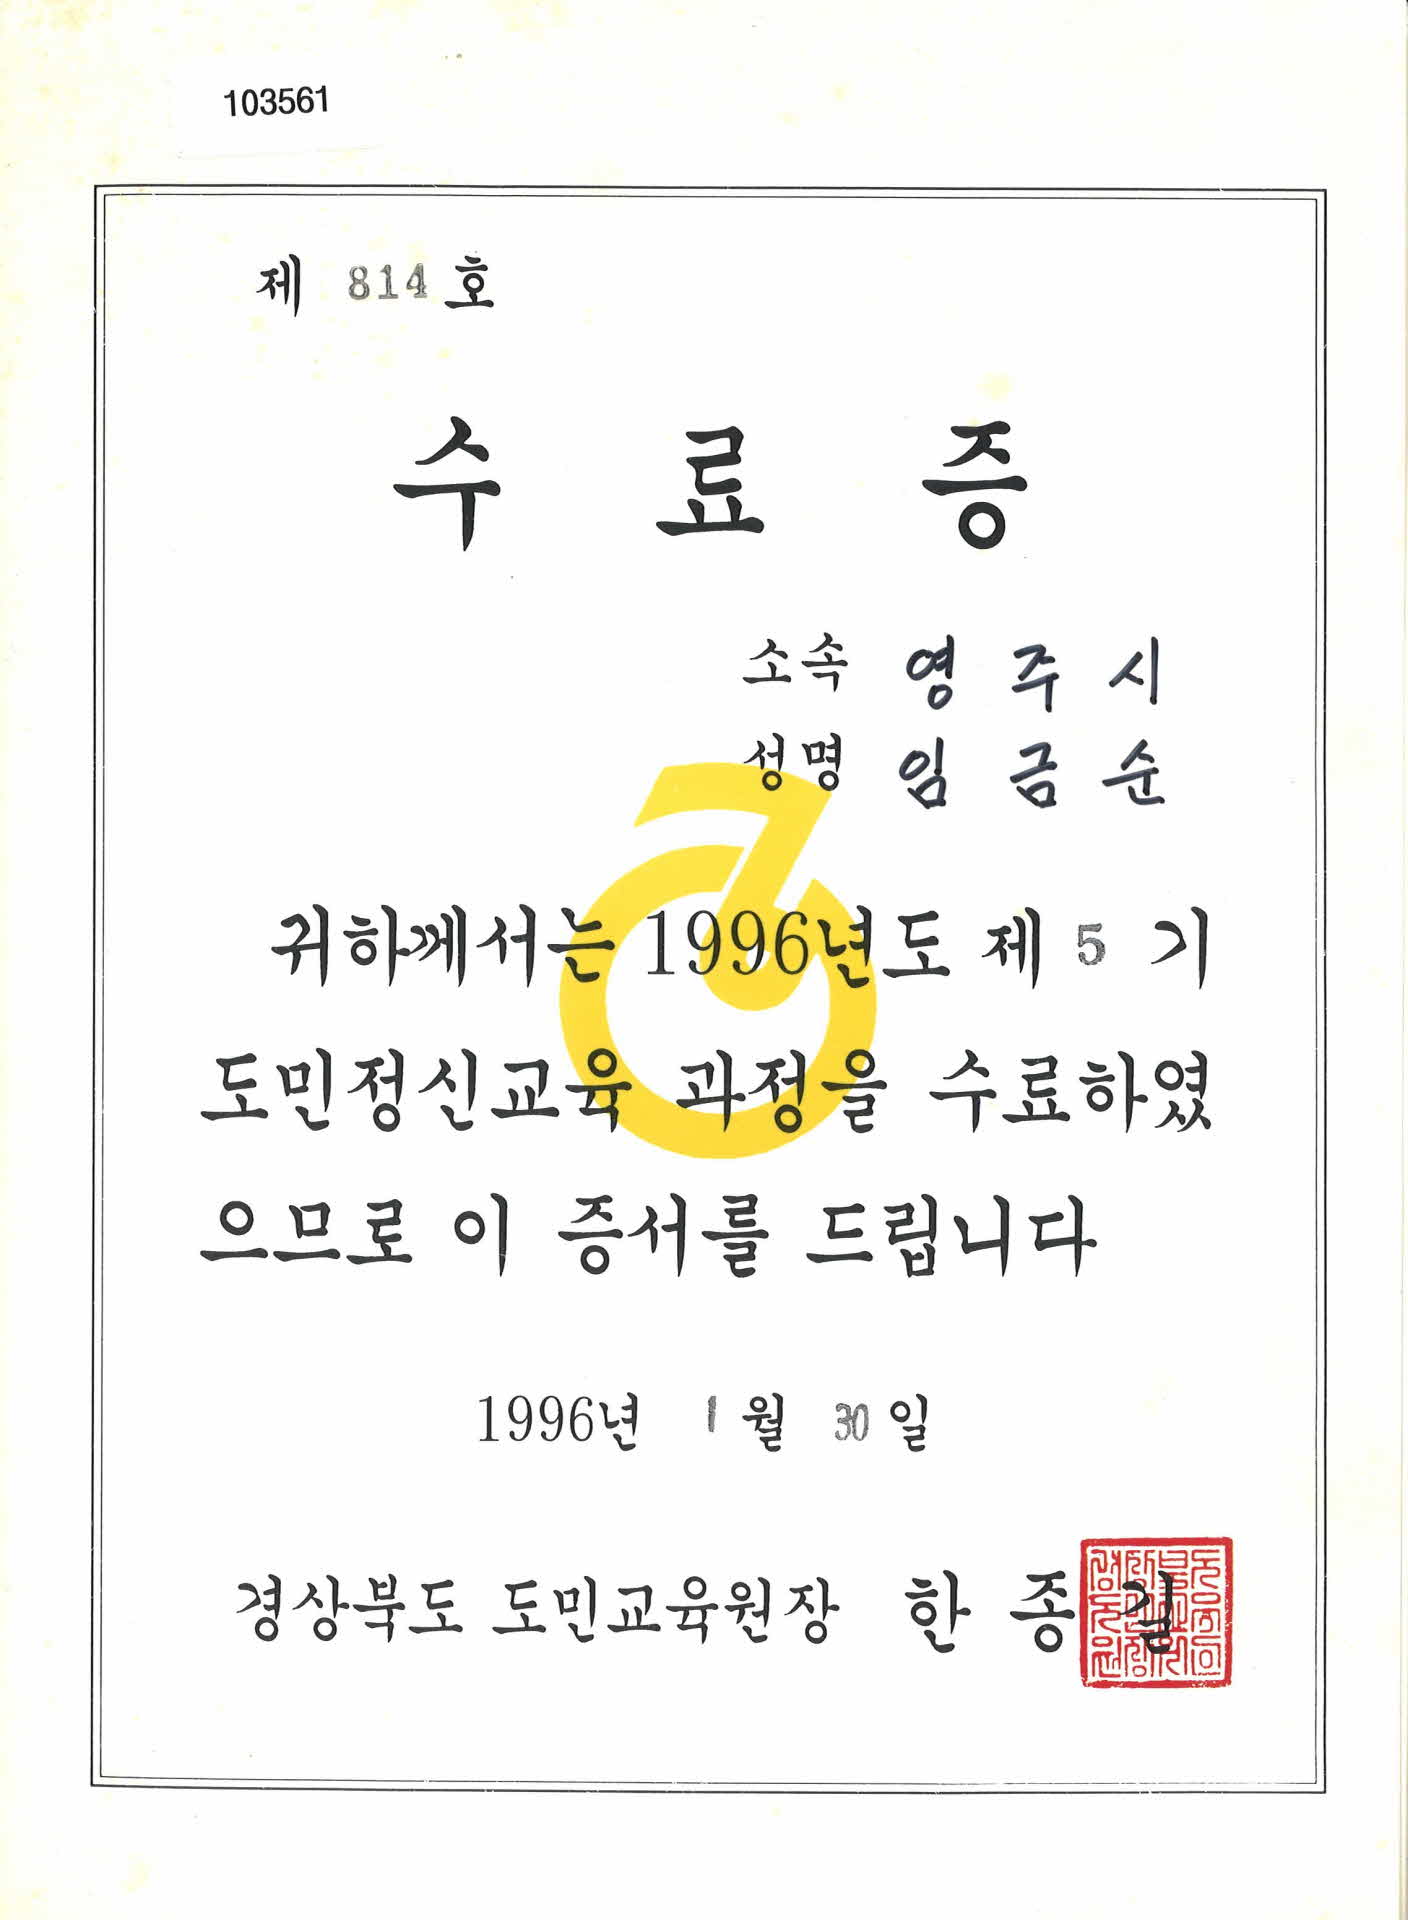 103561
제 814 호
수 료 증
소속 영 주 시
성명 임 금 순
귀하께서는 1996년도 제 5 기
도민정신교육 과정을 수료하였
으므로 이 증서를 드립니다
1996년 1 월 30 일
경상북도 도민교육원장 한 종 길